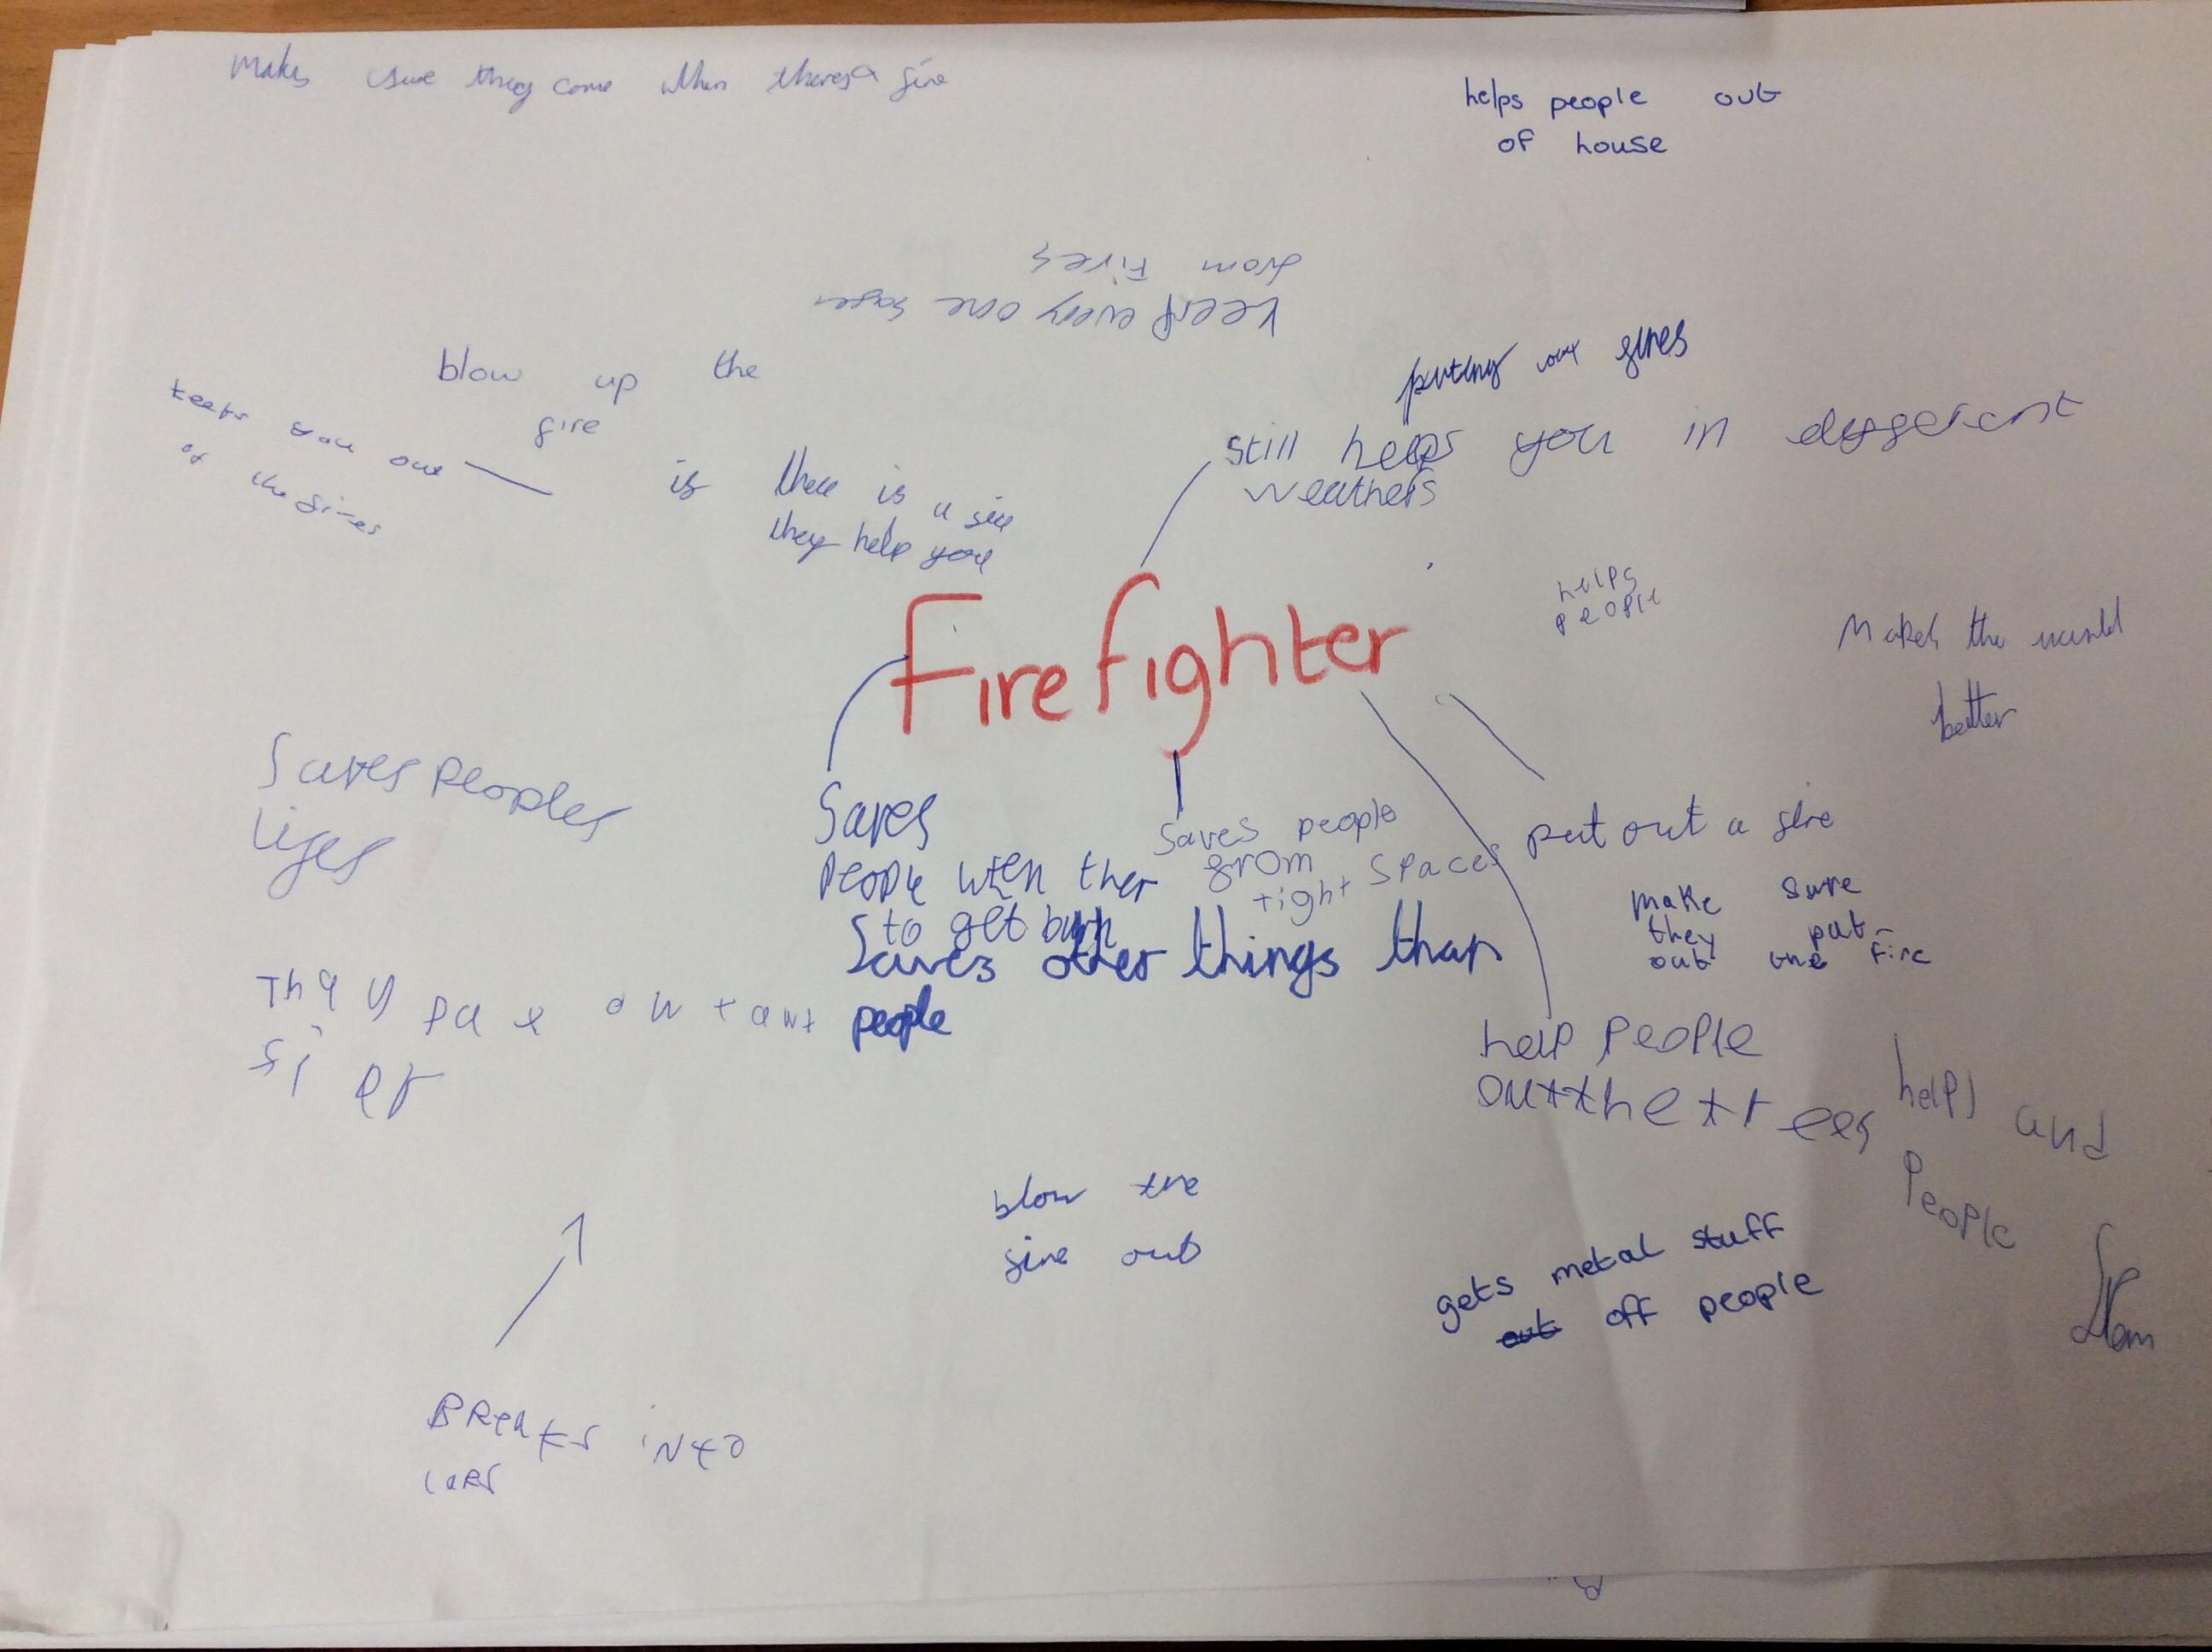 Makes sure they come when theres a fire
helps people out
of house
keep every one safer
from Fires
blow up the
fire
keeps you out
of the fires
if there is a fire
they help you
puting out fires
still helps you in different
weathers
Firefighter
helps
people
Makes the world
better
Saves peoples
lifes
Saves
people when ther
to get burn
saves people
from
tight spaces
put out a fire
make sure
they put
out the fire
Saves other things than
people
They
help people
out the trees
helps and
people
blow the
fire out
gets metal stuff
off people
BReaks into
cars